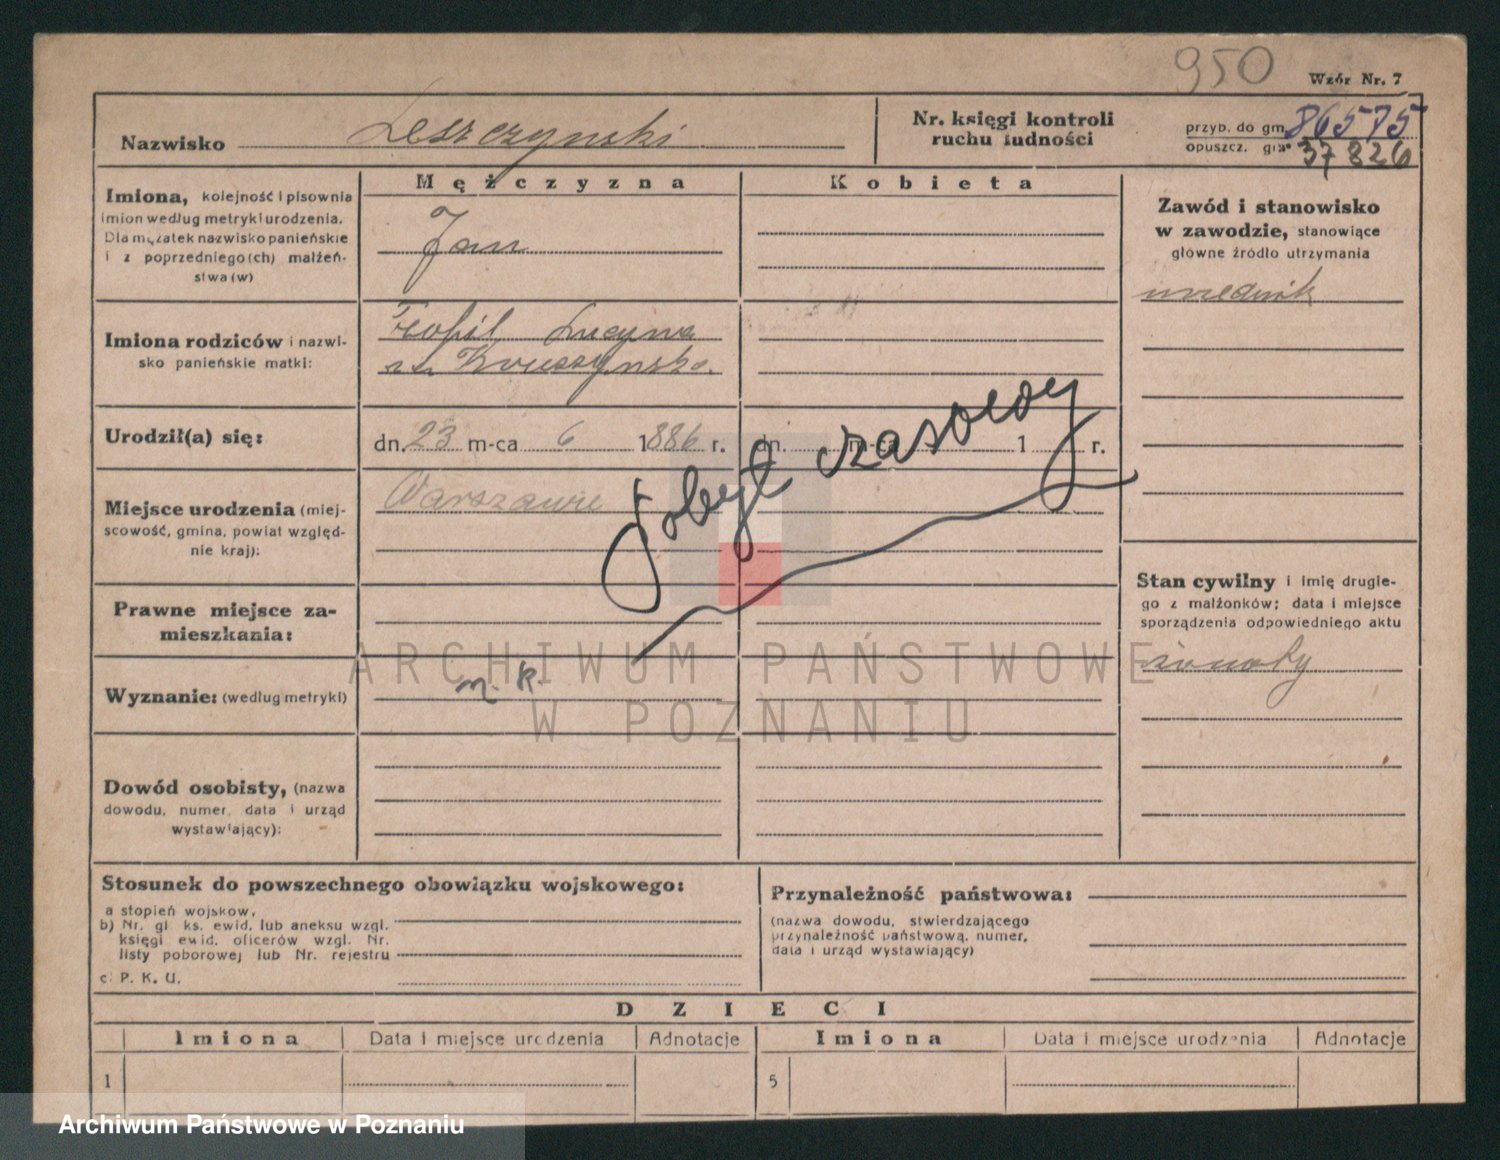 950
Wzór Nr. 7
Nazwisko Leszczynski
Nr. księgi kontroli
ruchu ludności
przyb. do gm. 86575
opuszcz. gm. 37826
Mężczyzna
Kobieta
Imiona, kolejność i pisownia
imion według metryki urodzenia.
Dla mężatek nazwisko panieńskie
i z poprzedniego(ch) małżeń-
stwa(w)
Jan
Zawód i stanowisko
w zawodzie, stanowiące
główne źródło utrzymania
urzednik
Imiona rodziców i nazwi-
sko panieńskie matki:
Teofil Lucyna
Urodził(a) się:
dn. 23 m-ca 6 1886 r.
dn. m-ca 1 r.
Pobyt czasowy
Miejsce urodzenia (miej-
scowość, gmina, powiat względ-
nie kraj):
Warszawie
Prawne miejsce za-
mieszkania:
Stan cywilny i imię drugie-
go z małżonków; data i miejsce
sporządzenia odpowiedniego aktu
żonaty
Wyznanie: (według metryki)
Dowód osobisty, (nazwa
dowodu, numer, data i urząd
wystawiający):
ARCHIWUM PAŃSTWOWE
W POZNANIU
Stosunek do powszechnego obowiązku wojskowego:
a stopień wojskow,
b) Nr. gł. ks. ewid. lub aneksu wzgl.
księgi ewid. oficerów wzgl. Nr.
listy poborowej lub Nr. rejestru
c. P. K. U.
Przynależność państwowa:
(nazwa dowodu, stwierdzającego
przynależność państwową, numer,
data i urząd wystawiający)
DZIECI
Imiona Data i miejsce urodzenia Adnotacje Imiona Data i miejsce urodzenia Adnotacje
1 5
Archiwum Państwowe w Poznaniu